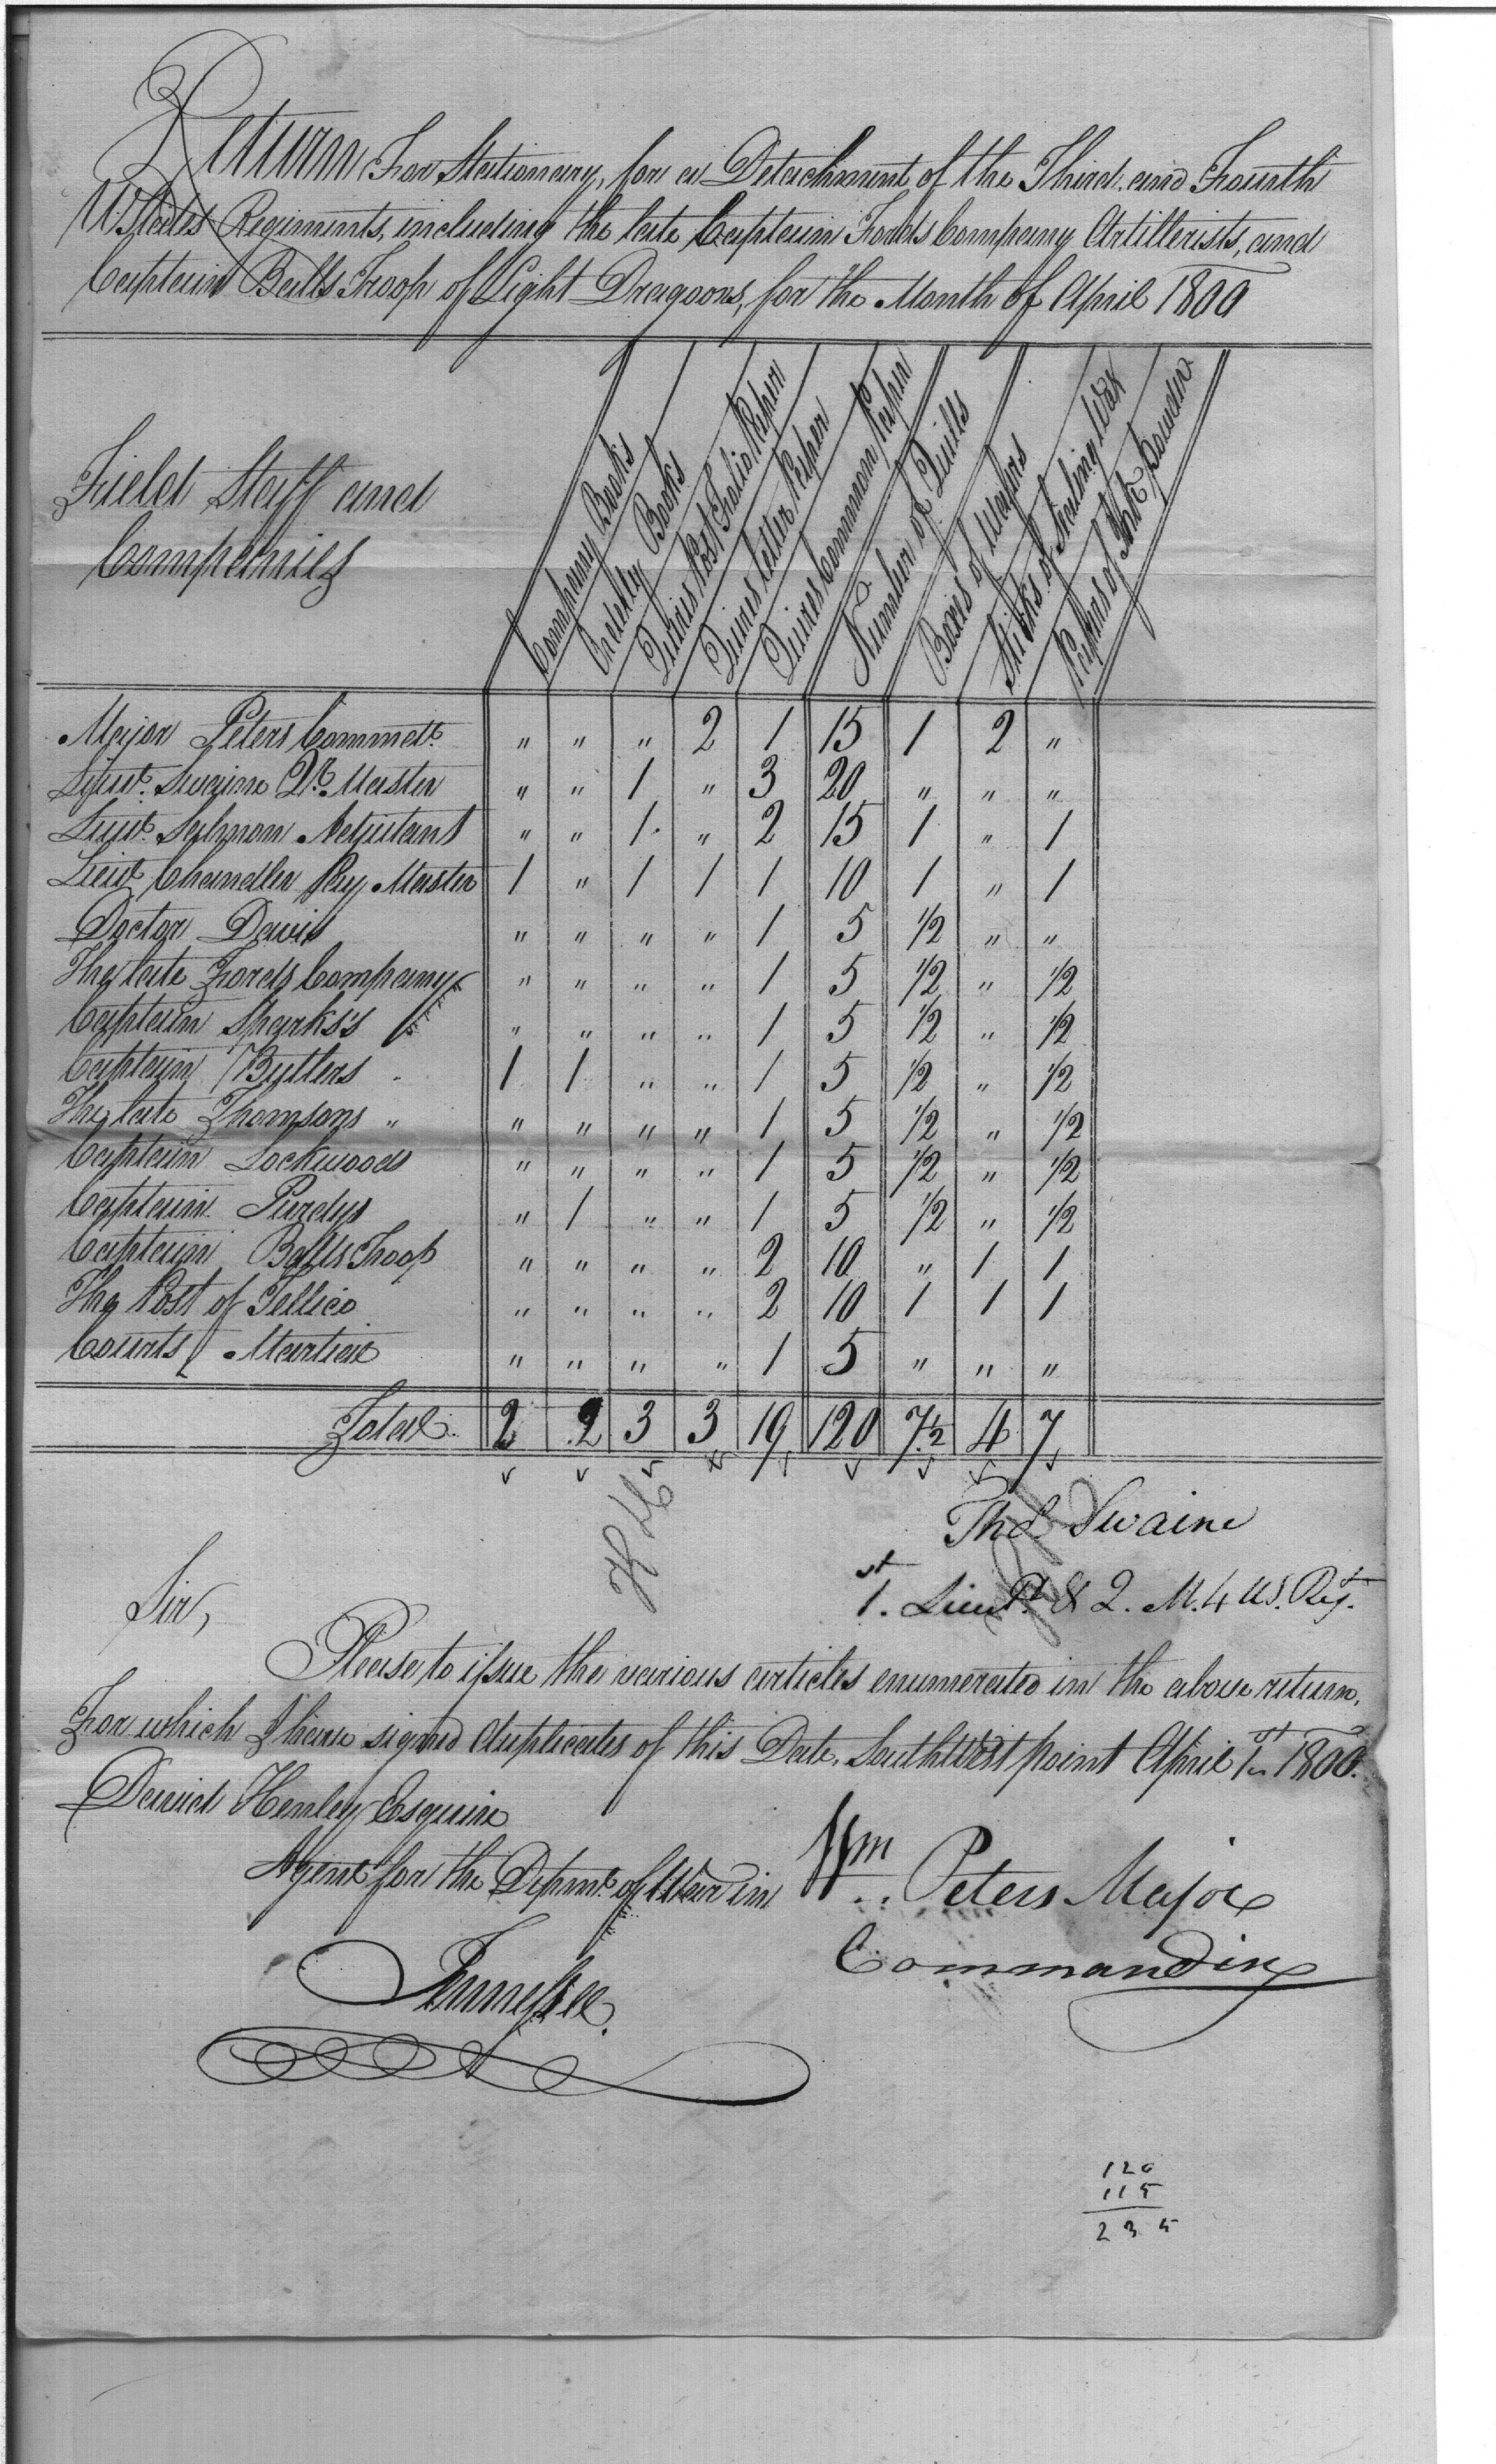 Return For Stationary, for a Detachment of the Third and Fourth
U States Regiments, including the late Captain Fords Company Artillerists, and
Captain Balls Troop of Light Dragoons, for the Month of April 1800
Field Staff and
Companies
Company Books
Orderly Books
Quires Post Folio Paper
Quires letter Paper
Quires Common Paper
Number of Quills
Boxes of Wafers
Sticks of Sealing Wax
Papers of Ink powder
Major Peters Commdt. " " " 2 1 15 1 2 "
Lieut. Swaine Qr. Master " " 1 " 3 20 " " "
Lieut. Salmon Adjutant " " 1 " 2 15 1 " 1
Lieut Chandler Pay Master 1 " 1 1 1 10 1 " 1
Doctor Davis " " " " 1 5 1/2 " "
The late Fords Company " " " " 1 5 1/2 " 1/2
Captain Sparks's " " " " 1 5 1/2 " 1/2
Captain Butlers 1 1 " " 1 5 1/2 " 1/2
The late Thomsons " " " " " 1 5 1/2 " 1/2
Captain Lockwoods " " " " 1 5 1/2 " 1/2
Captain Purdys " 1 " " 1 5 1/2 " 1/2
Captain Balls Troop " " " " 2 10 " 1 1
The Post of Tellico " " " " 2 10 1 1 1
Courts Martial " " " " 1 5 " " "
Total 2 2 3 3 19 120 7 1/2 4 7
Thos. Swaine
1st. Lieut. & Q. M. 4 US. Regt.
Sir,
Please to issue the various articles enumerated in the above return,
For which I have signed duplicates of this Date, Southwest point April 1st 1800.
David Henley Esquire
Agent for the Depmt. of War in
Tennessee.
Wm Peters Major
Commanding
120
115
235